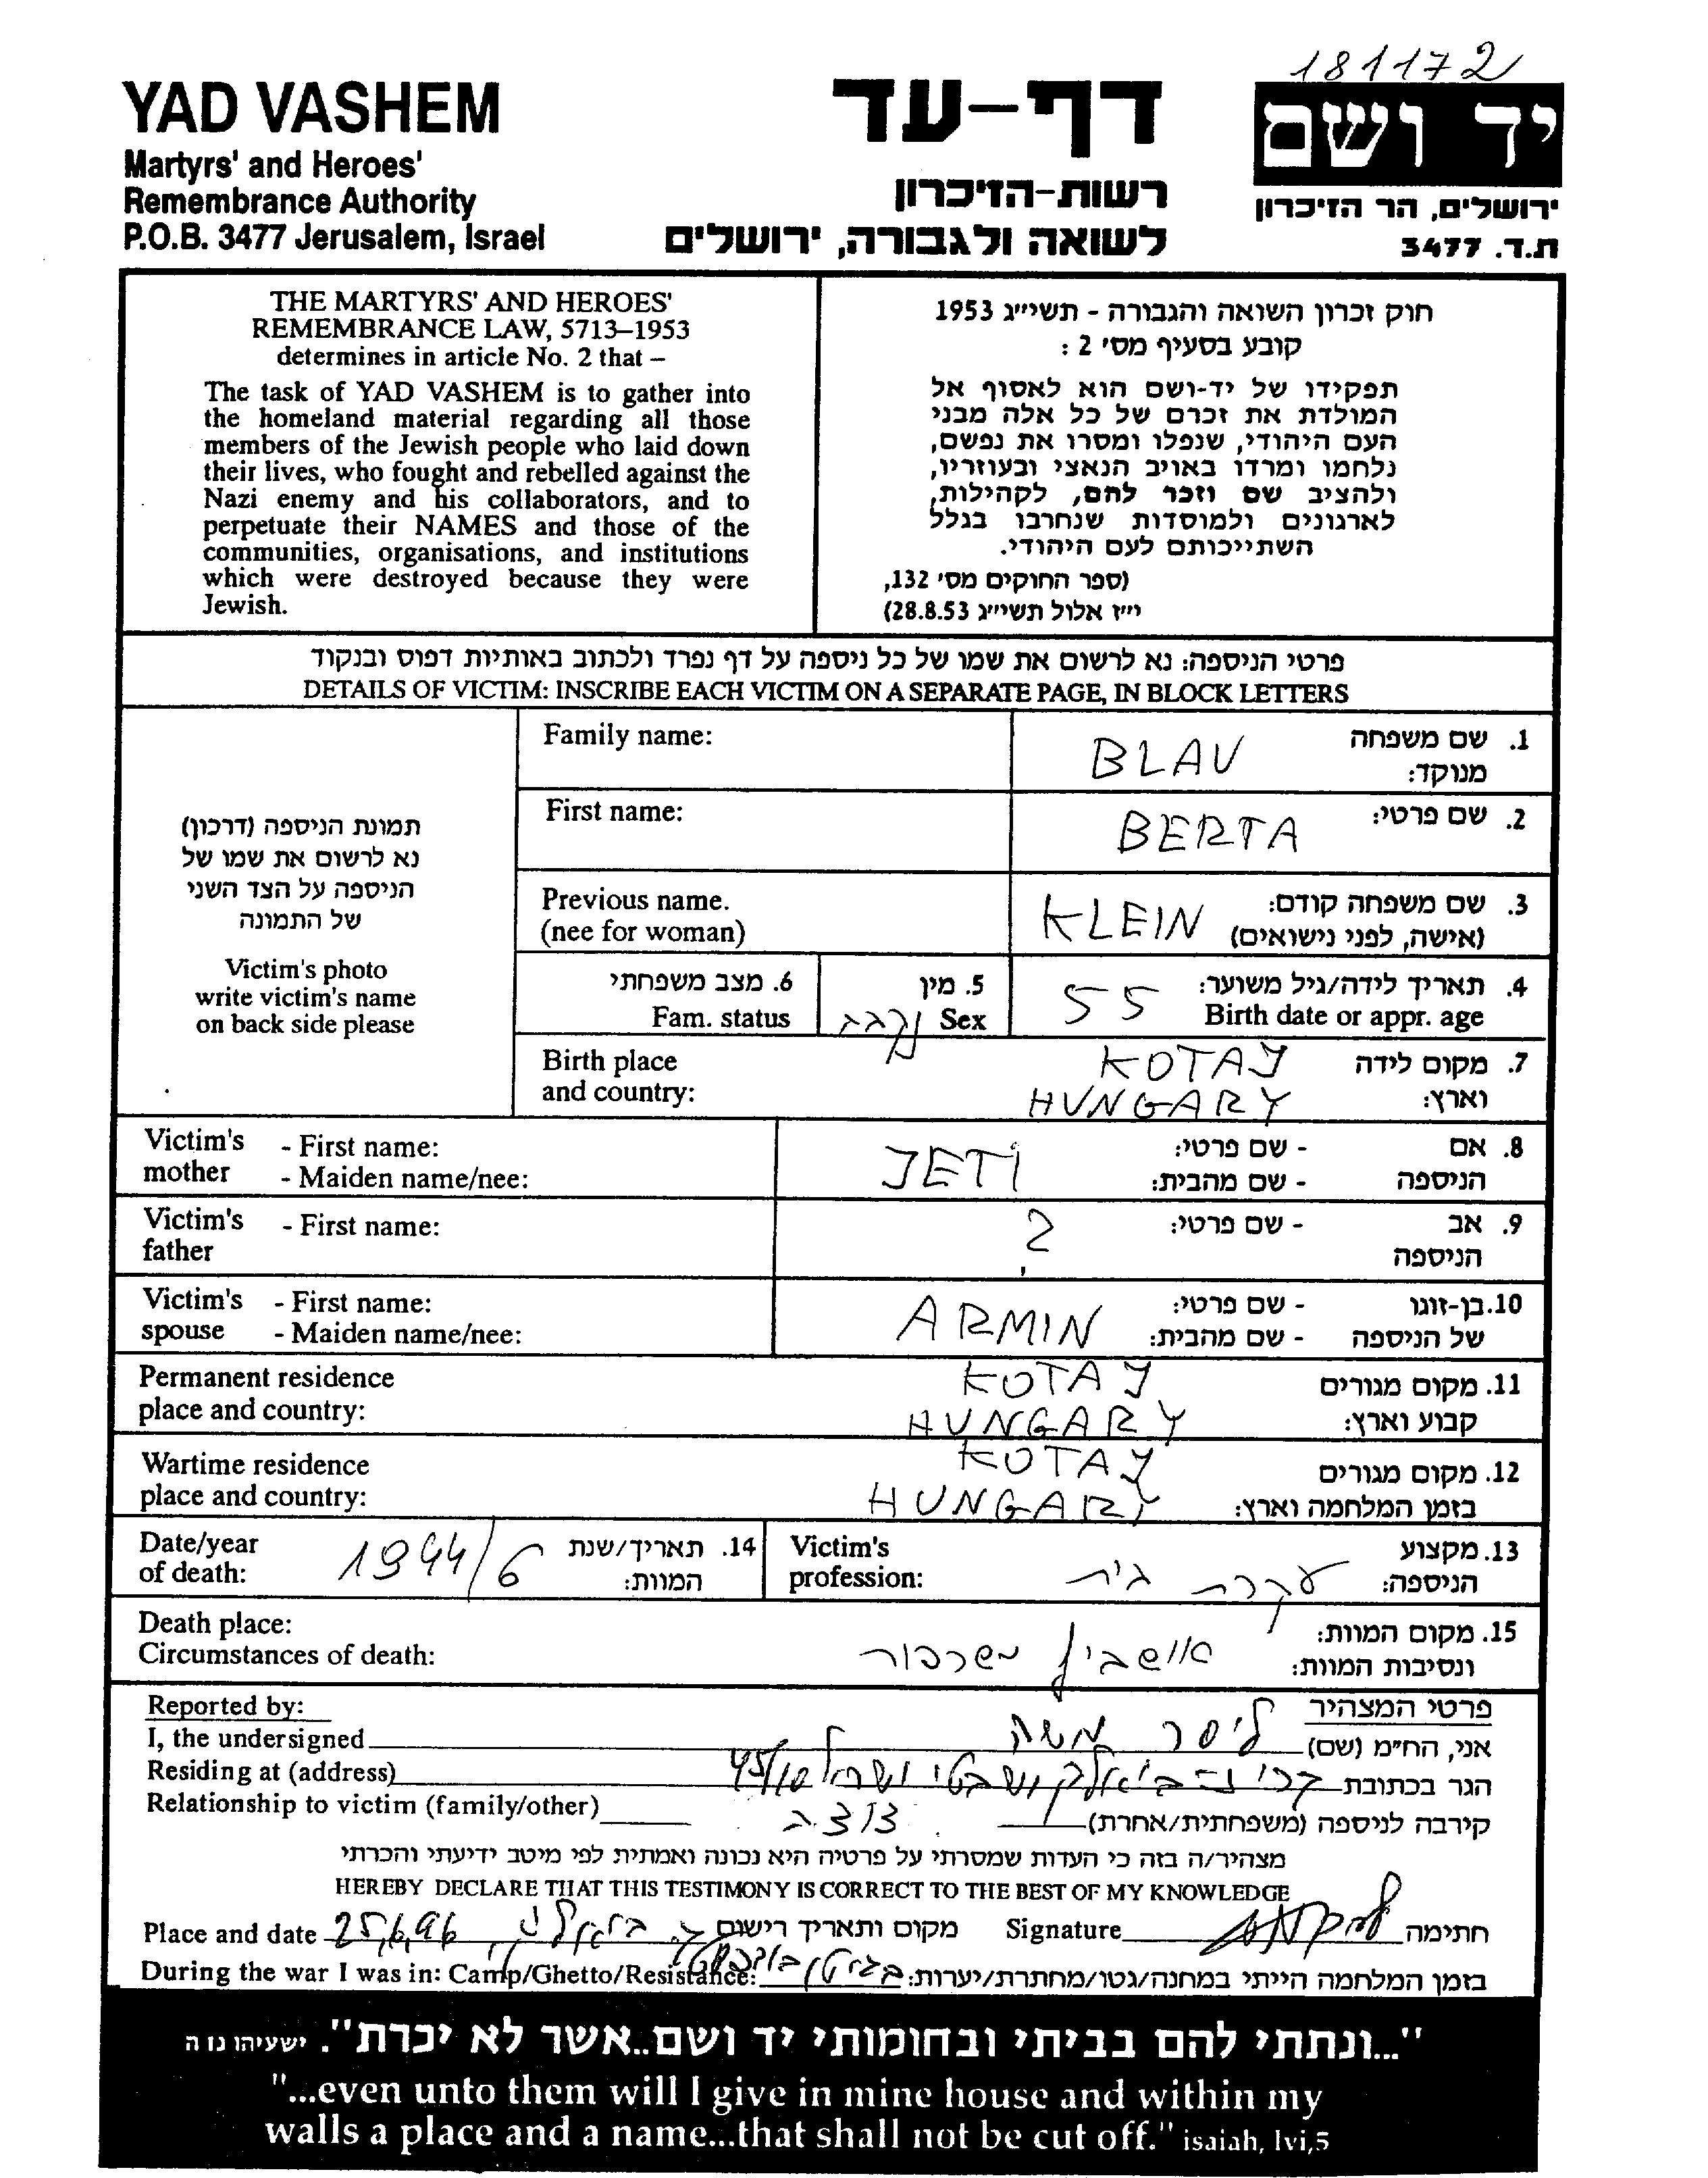 181172
YAD VASHEM
Martyrs' and Heroes'
Remembrance Authority
P.O.B. 3477 Jerusalem, Israel
דף-עד
רשות-הזיכרון
לשואה ולגבורה, ירושלים
יד ושם
ירושלים, הר הזיכרון
ת.ד. 3477
THE MARTYRS' AND HEROES'
REMEMBRANCE LAW, 5713–1953
determines in article No. 2 that –
The task of YAD VASHEM is to gather into
the homeland material regarding all those
members of the Jewish people who laid down
their lives, who fought and rebelled against the
Nazi enemy and his collaborators, and to
perpetuate their NAMES and those of the
communities, organisations, and institutions
which were destroyed because they were
Jewish.
חוק זכרון השואה והגבורה - תשי״ג 1953
קובע בסעיף מס׳ 2 :
תפקידו של יד-ושם הוא לאסוף אל
המולדת את זכרם של כל אלה מבני
העם היהודי, שנפלו ומסרו את נפשם,
נלחמו ומרדו באויב הנאצי ובעוזריו,
ולהציב שם וזכר להם, לקהילות,
לארגונים ולמוסדות שנחרבו בגלל
השתייכותם לעם היהודי.
(ספר החוקים מס׳ 132,
י״ז אלול תשי״ג 28.8.53)
פרטי הניספה: נא לרשום את שמו של כל ניספה על דף נפרד ולכתוב באותיות דפוס ובנקוד
DETAILS OF VICTIM: INSCRIBE EACH VICTIM ON A SEPARATE PAGE, IN BLOCK LETTERS
תמונת הניספה (דרכון)
נא לרשום את שמו של
הניספה על הצד השני
של התמונה
Victim's photo
write victim's name
on back side please
Family name: BLAU 1. שם משפחה
מנוקד:
First name: BERTA 2. שם פרטי:
Previous name. KLEIN 3. שם משפחה קודם:
(nee for woman) (אישה, לפני נישואים)
6. מצב משפחתי 5. מין 55 4. תאריך לידה/גיל משוער:
Fam. status נקבה Sex Birth date or appr. age
Birth place KOTAJ 7. מקום לידה
and country: HUNGARY וארץ:
Victim's - First name: JETI - שם פרטי: 8. אם
mother - Maiden name/nee: - שם מהבית: הניספה
Victim's - First name: ? - שם פרטי: 9. אב
father הניספה
Victim's - First name: ARMIN - שם פרטי: 10. בן-זוגו
spouse - Maiden name/nee: - שם מהבית: של הניספה
Permanent residence KOTAJ 11. מקום מגורים
place and country: HUNGARY קבוע וארץ:
Wartime residence KOTAJ 12. מקום מגורים
place and country: HUNGARY בזמן המלחמה וארץ:
Date/year 1944/6 14. תאריך/שנת Victim's 13. מקצוע
of death: המוות: profession: עקרת בית הניספה:
Death place: 15. מקום המוות:
Circumstances of death: אושביץ משרפור ונסיבות המוות:
Reported by: פרטי המצהיר
I, the undersigned משה אני, הח״מ (שם)
Residing at (address) 45/10 הגר בכתובת
Relationship to victim (family/other) קירבה לניספה (משפחתית/אחרת)
מצהיר/ה בזה כי העדות שמסרתי על פרטיה היא נכונה ואמתית לפי מיטב ידיעתי והכרתי
HEREBY DECLARE THAT THIS TESTIMONY IS CORRECT TO THE BEST OF MY KNOWLEDGE
Place and date 25,6,96 מקום ותאריך רישום Signature חתימה
During the war I was in: Camp/Ghetto/Resistance: בזמן המלחמה הייתי במחנה/גטו/מחתרת/יערות:
"...ונתתי להם בביתי ובחומותי יד ושם..אשר לא יכרת". ישעיהו נו ה
"...even unto them will I give in mine house and within my
walls a place and a name...that shall not be cut off." isaiah, lvi,5